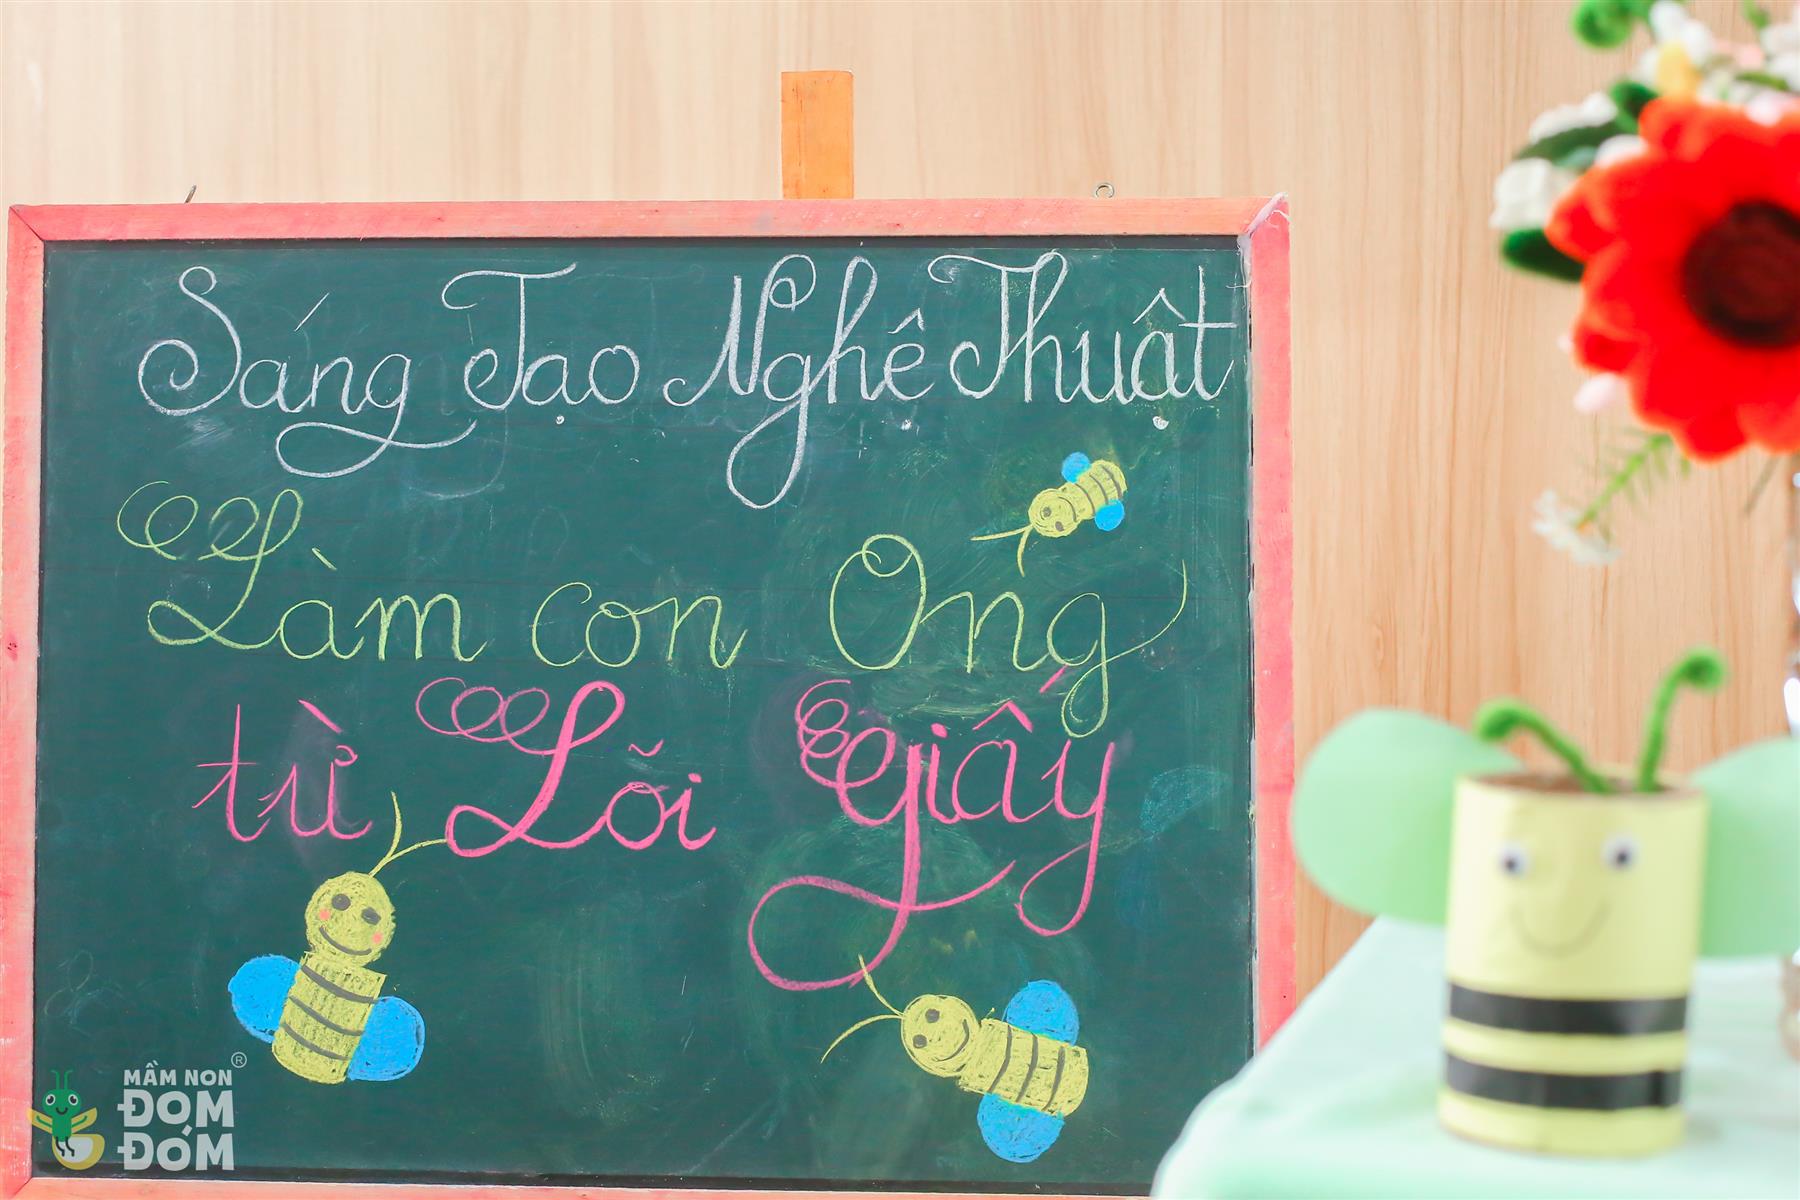 Sáng Tạo Nghệ Thuật
Làm con Ong
từ Lõi Giấy
MẦM NON ®
ĐOM
ĐÓM